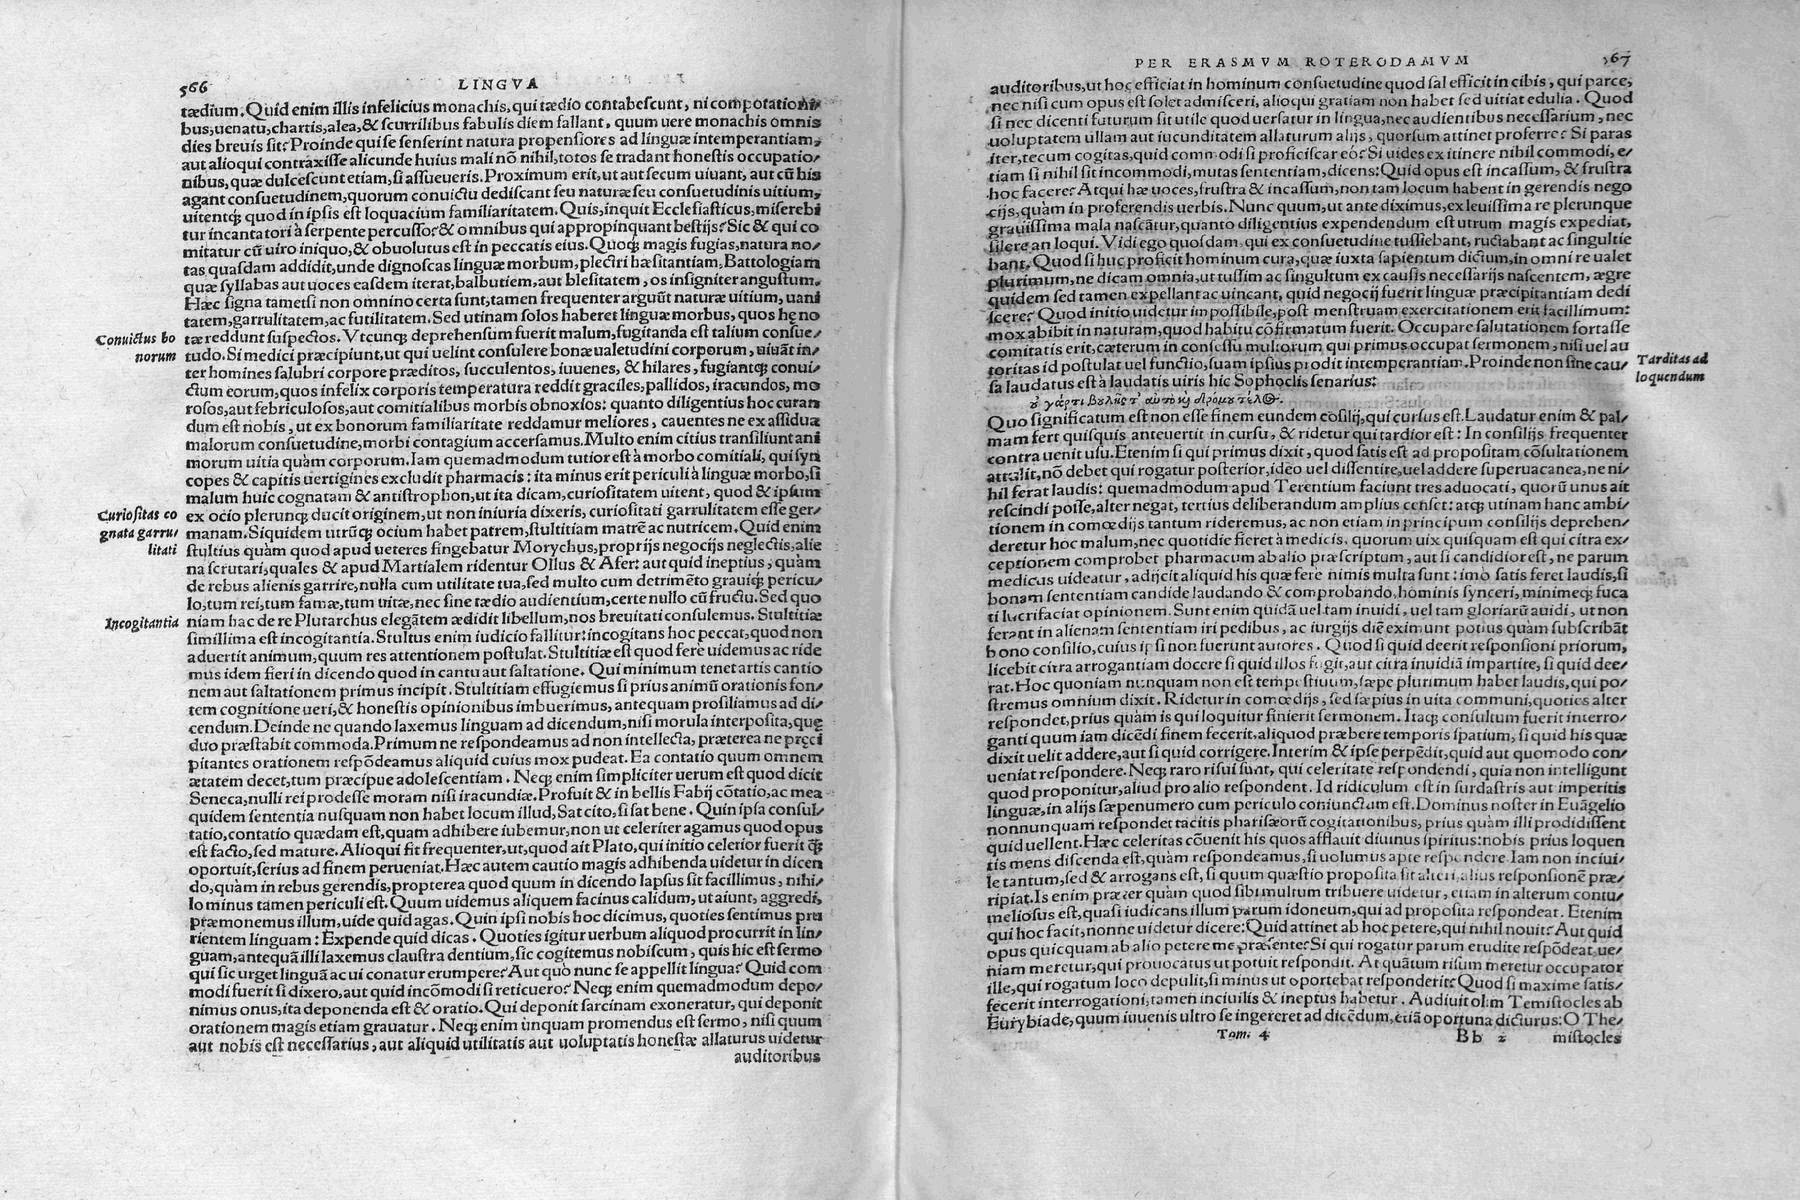 566 LINGVA
tædium. Quid enim illis infelicius monachis, qui tædio contabeſcunt, ni compotationi⸗
bus, uenatu, chartis, alea, & ſcurrilibus fabulis diem fallant, quum uere monachis omnis
dies breuis ſit? Proinde qui ſe ſenſerint natura propenſiores ad linguæ intemperantiam,
aut alioqui contraxiſſe alicunde huius mali nō nihil, totos ſe tradant honeſtis occupatio⸗
nibus, quæ dulceſcunt etiam, ſi aſſueueris. Proximum erit, ut aut ſecum uiuant, aut cū his
agant conſuetudinem, quorum conuictu dediſcant ſeu naturæ ſeu conſuetudinis uitium,
uitentq́; quod in ipſis eſt loquacium familiaritatem. Quis, inquit Eccleſiaſticus, miſerebi
tur incantatori à ſerpente percuſſo? & omnibus qui appropinquant beſtijs? Sic & qui co
mitatur cū uiro iniquo, & obuolutus eſt in peccatis eius. Quoq́; magis fugias, natura no⸗
tas quaſdam addidit, unde dignoſcas linguæ morbum, plectri hæſitantiam, Battologiam
quæ ſyllabas aut uoces eaſdem iterat, balbutiem, aut bleſitatem, os inſigniter anguſtum.
Hæc ſigna tametſi non omnino certa ſunt, tamen frequenter arguūt naturæ uitium, uani
tatem, garrulitatem, ac futilitatem. Sed utinam ſolos haberet linguæ morbus, quos hę no
Conuictus bo tæ reddunt ſuſpectos. Vtcunq́; deprehenſum fuerit malum, fugitanda eſt talium conſue⸗
norum tudo. Si medici præcipiunt, ut qui uelint conſulere bonæ ualetudini corporum, uiuāt in⸗
ter homines ſalubri corpore præditos, ſucculentos, iuuenes, & hilares, fugiantq́; conui⸗
ctum eorum, quos infelix corporis temperatura reddit graciles, pallidos, iracundos, mo
roſos, aut febriculoſos, aut comitialibus morbis obnoxios: quanto diligentius hoc curan
dum eſt nobis, ut ex bonorum familiaritate reddamur meliores, cauentes ne ex aſſidua
malorum conſuetudine, morbi contagium accerſamus. Multo enim citius tranſiliunt ani
morum uitia quàm corporum. Iam quemadmodum tutior eſt à morbo comitiali, qui ſyn
copes & capitis uertigines excludit pharmacis: ita minus erit periculi à linguæ morbo, ſi
malum huic cognatam & antiſtrophon, ut ita dicam, curioſitatem uitent, quod & ipſum
Curioſitas co ex ocio plerunq́; ducit originem, ut non iniuria dixeris, curioſitati garrulitatem eſſe ger⸗
gnata garru⸗ manam. Siquidem utrūq́; ocium habet patrem, ſtultitiam matrē ac nutricem. Quid enim
litati ſtultius quàm quod apud ueteres fingebatur Morychus, proprijs negocijs neglectis, alie
na ſcrutari, quales & apud Martialem ridentur Ollus & Afer: aut quid ineptius, quàm
de rebus alienis garrire, nulla cum utilitate tua, ſed multo cum detrimēto grauiq́; pericu⸗
lo, tum rei, tum famæ, tum uitæ, nec ſine tædio audientium, certe nullo cū fructu. Sed quo
Incogitantia niam hac de re Plutarchus elegātem ædidit libellum, nos breuitati conſulemus. Stultitiæ
ſimillima eſt incogitantia. Stultus enim iudicio fallitur: incogitans hoc peccat, quod non
aduertit animum, quum res attentionem poſtulat. Stultitiæ eſt quod ferè uidemus ac ride
mus idem fieri in dicendo quod in cantu aut ſaltatione. Qui minimum tenet artis cantio
nem aut ſaltationem primus incipit. Stultitiam effugiemus ſi prius animū orationis fon⸗
tem cognitione ueri, & honeſtis opinionibus imbuerimus, antequam proſiliamus ad di⸗
cendum. Deinde ne quando laxemus linguam ad dicendum, niſi morula interpoſita, quę
duo præſtabit commoda. Primum ne reſpondeamus ad non intellecta, præterea ne pręci
pitantes orationem reſpōdeamus aliquid cuius mox pudeat. Ea contatio quum omnem
ætatem decet, tum præcipue adoleſcentiam. Neq́; enim ſimpliciter uerum eſt quod dicit
Seneca, nulli rei prodeſſe moram niſi iracundiæ. Profuit & in bellis Fabij cōtatio, ac mea
quidem ſententia nuſquam non habet locum illud, Sat cito, ſi ſat bene. Quin ipſa conſul⸗
tatio, contatio quædam eſt, quam adhibere iubemur, non ut celeriter agamus quod opus
eſt facto, ſed mature. Alioqui fit frequenter, ut, quod ait Plato, qui initio celerior fuerit q̄ꝫ
oportuit, ſerius ad finem perueniat. Hæc autem cautio magis adhibenda uidetur in dicen
do, quàm in rebus gerendis, propterea quod quum in dicendo lapſus ſit facillimus, nihi⸗
lo minus tamen periculi eſt. Quum uidemus aliquem facinus calidum, ut aiunt, aggredi,
præmonemus illum, uide quid agas. Quin ipſi nobis hoc dicimus, quoties ſentimus pru
rientem linguam: Expende quid dicas. Quoties igitur uerbum aliquod procurrit in lin⸗
guam, antequā illi laxemus clauſtra dentium, ſic cogitemus nobiſcum, quis hic eſt ſermo
qui ſic urget linguā ac ui conatur erumpere? Aut quò nunc ſe appellit lingua? Quid com
modi fuerit ſi dixero, aut quid incōmodi ſi reticuero? Neq́; enim quemadmodum depo⸗
nimus onus, ita deponenda eſt & oratio. Qui deponit ſarcinam exoneratur, qui deponit
orationem magis etiam grauatur. Neq́; enim ùnquam promendus eſt ſermo, niſi quum
aut nobis eſt neceſſarius, aut aliquid utilitatis aut uoluptatis honeſtæ allaturus uidetur
auditoribus
PER ERASMVM ROTERODAMVM 567
auditoribus, ut hoc efficiat in hominum conſuetudine quod ſal efficit in cibis, qui parce,
nec niſi cum opus eſt ſolet admiſceri, alioqui gratiam non habet ſed uitiat edulia. Quod
ſi nec dicenti futurum ſit utile quod uerſatur in lingua, nec audientibus neceſſarium, nec
uoluptatem ullam aut iucunditatem allaturum alijs, quorſum attinet proferre? Si paras
iter, tecum cogitas, quid commodi ſi proficiſcar eò? Si uides ex itinere nihil commodi, e⸗
tiam ſi nihil ſit incommodi, mutas ſententiam, dicens: Quid opus eſt incaſſum, & fruſtra
hoc facere? Atqui hæ uoces, fruſtra & incaſſum, non tam locum habent in gerendis nego
cijs, quàm in proferendis uerbis. Nunc quum, ut ante diximus, ex leuiſſima re plerunque
grauiſſima mala naſcātur, quanto diligentius expendendum eſt utrum magis expediat,
ſilere an loqui. Vidi ego quoſdam qui ex conſuetudine tuſſiebant, ructabant ac ſingultie
bant. Quod ſi huc proficit hominum cura, quæ iuxta ſapientum dictum, in omni re ualet
plurimum, ne dicam omnia, ut tuſſim ac ſingultum ex cauſis neceſſarijs naſcentem, ægre
quidem ſed tamen expellant ac uincant, quid negocij fuerit linguæ præcipitantiam dedi
ſcere? Quod initio uidetur impoſſibile, poſt menſtruam exercitationem erit facillimum:
mox abibit in naturam, quod habitu cōfirmatum fuerit. Occupare ſalutationem fortaſſe
comitatis erit, cæterum in conſeſſu multorum qui primus occupat ſermonem, niſi uel au
Tarditas ad toritas id poſtulat uel functio, ſuam ipſius prodit intemperantiam. Proinde non ſine cau⸗
loquendum ſa laudatus eſt à laudatis uiris hic Sophoclis ſenarius:
Quo ſignificatum eſt non eſſe finem eundem cōſilij, qui curſus eſt. Laudatur enim & pal⸗
mam fert quiſquis anteuertit in curſu, & ridetur qui tardior eſt: In conſilijs frequenter
contra uenit uſu. Etenim ſi qui primus dixit, quod ſatis eſt ad propoſitam cōſultationem
attulit, nō debet qui rogatur poſterior, ideo uel diſſentire, uel addere ſuperuacanea, ne ni⸗
hil ferat laudis: quemadmodum apud Terentium faciunt tres aduocati, quorū unus ait
reſcindi poſſe, alter negat, tertius deliberandum amplius cenſet: atq́; utinam hanc ambi⸗
tionem in comœdijs tantum rideremus, ac non etiam in principum conſilijs deprehen⸗
deretur hoc malum, nec quotidie fieret à medicis, quorum uix quiſquam eſt qui citra ex⸗
ceptionem comprobet pharmacum ab alio præſcriptum, aut ſi candidior eſt, ne parum
medicus uideatur, adijcit aliquid his quæ ferè nimis multa ſunt: imò ſatis feret laudis, ſi
bonam ſententiam candide laudando & comprobando, hominis ſynceri, minimeq́; fuca
ti lucrifaciat opinionem. Sunt enim quidā uel tam inuidi, uel tam gloriarū auidi, ut non
ferant in alienam ſententiam iri pedibus, ac iurgijs diē eximunt potius quàm ſubſcribāt
bono conſilio, cuius ipſi non fuerunt autores. Quod ſi quid deerit reſponſioni priorum,
licebit citra arrogantiam docere ſi quid illos fugit, aut citra inuidiā impartire, ſi quid dee⸗
rat. Hoc quoniam nunquam non eſt tempeſtiuum, ſæpe plurimum habet laudis, qui po⸗
ſtremus omnium dixit. Ridetur in comœdijs, ſed ſæpius in uita communi, quoties alter
reſpondet, prius quàm is qui loquitur finierit ſermonem. Itaq́; conſultum fuerit interro⸗
ganti quum iam dicēdi finem fecerit, aliquod præbere temporis ſpatium, ſi quid his quæ
dixit uelit addere, aut ſi quid corrigere. Interim & ipſe perpēdit, quid aut quomodo con⸗
ueniat reſpondere. Neq́; raro riſui ſunt, qui celeritate reſpondendi, quia non intelligunt
quod proponitur, aliud pro alio reſpondent. Id ridiculum eſt in ſurdaſtris aut imperitis
linguæ, in alijs ſæpenumero cum periculo coniunctum eſt. Dominus noſter in Euāgelio
nonnunquam reſpondet tacitis phariſæorū cogitationibus, prius quàm illi prodidiſſent
quid uellent. Hæc celeritas cōuenit his quos afflauit diuinus ſpiritus: nobis prius loquen
tis mens diſcenda eſt, quàm reſpondeamus, ſi uolumus apte reſpondere. Iam non inciui⸗
le tantum, ſed & arrogans eſt, ſi quum quæſtio propoſita ſit alteri, alius reſponſionē præ⸗
ripiat. Is enim præter quàm quod ſibi multum tribuere uidetur, etiam in alterum contu⸗
melioſus eſt, quaſi iudicans illum parum idoneum, qui ad propoſita reſpondeat. Etenim
qui hoc facit, nonne uidetur dicere: Quid attinet ab hoc petere, qui nihil nouit? Aut quid
opus quicquam ab alio petere me præſente? Si qui rogatur parum erudite reſpōdeat, ue⸗
niam meretur, qui prouocatus ut potuit reſpondit. At quātum riſum meretur occupator
ille, qui rogatum loco depulit, ſi minus ut oportebat reſponderit? Quod ſi maxime ſatis⸗
fecerit interrogationi, tamen inciuilis & ineptus habetur. Audiuit olim Temiſtocles ab
Eurybiade, quum iuuenis ultro ſe ingereret ad dicēdum, etiā oportuna dicturus: O The⸗
Tom. 4 Bb 2 miſtocles